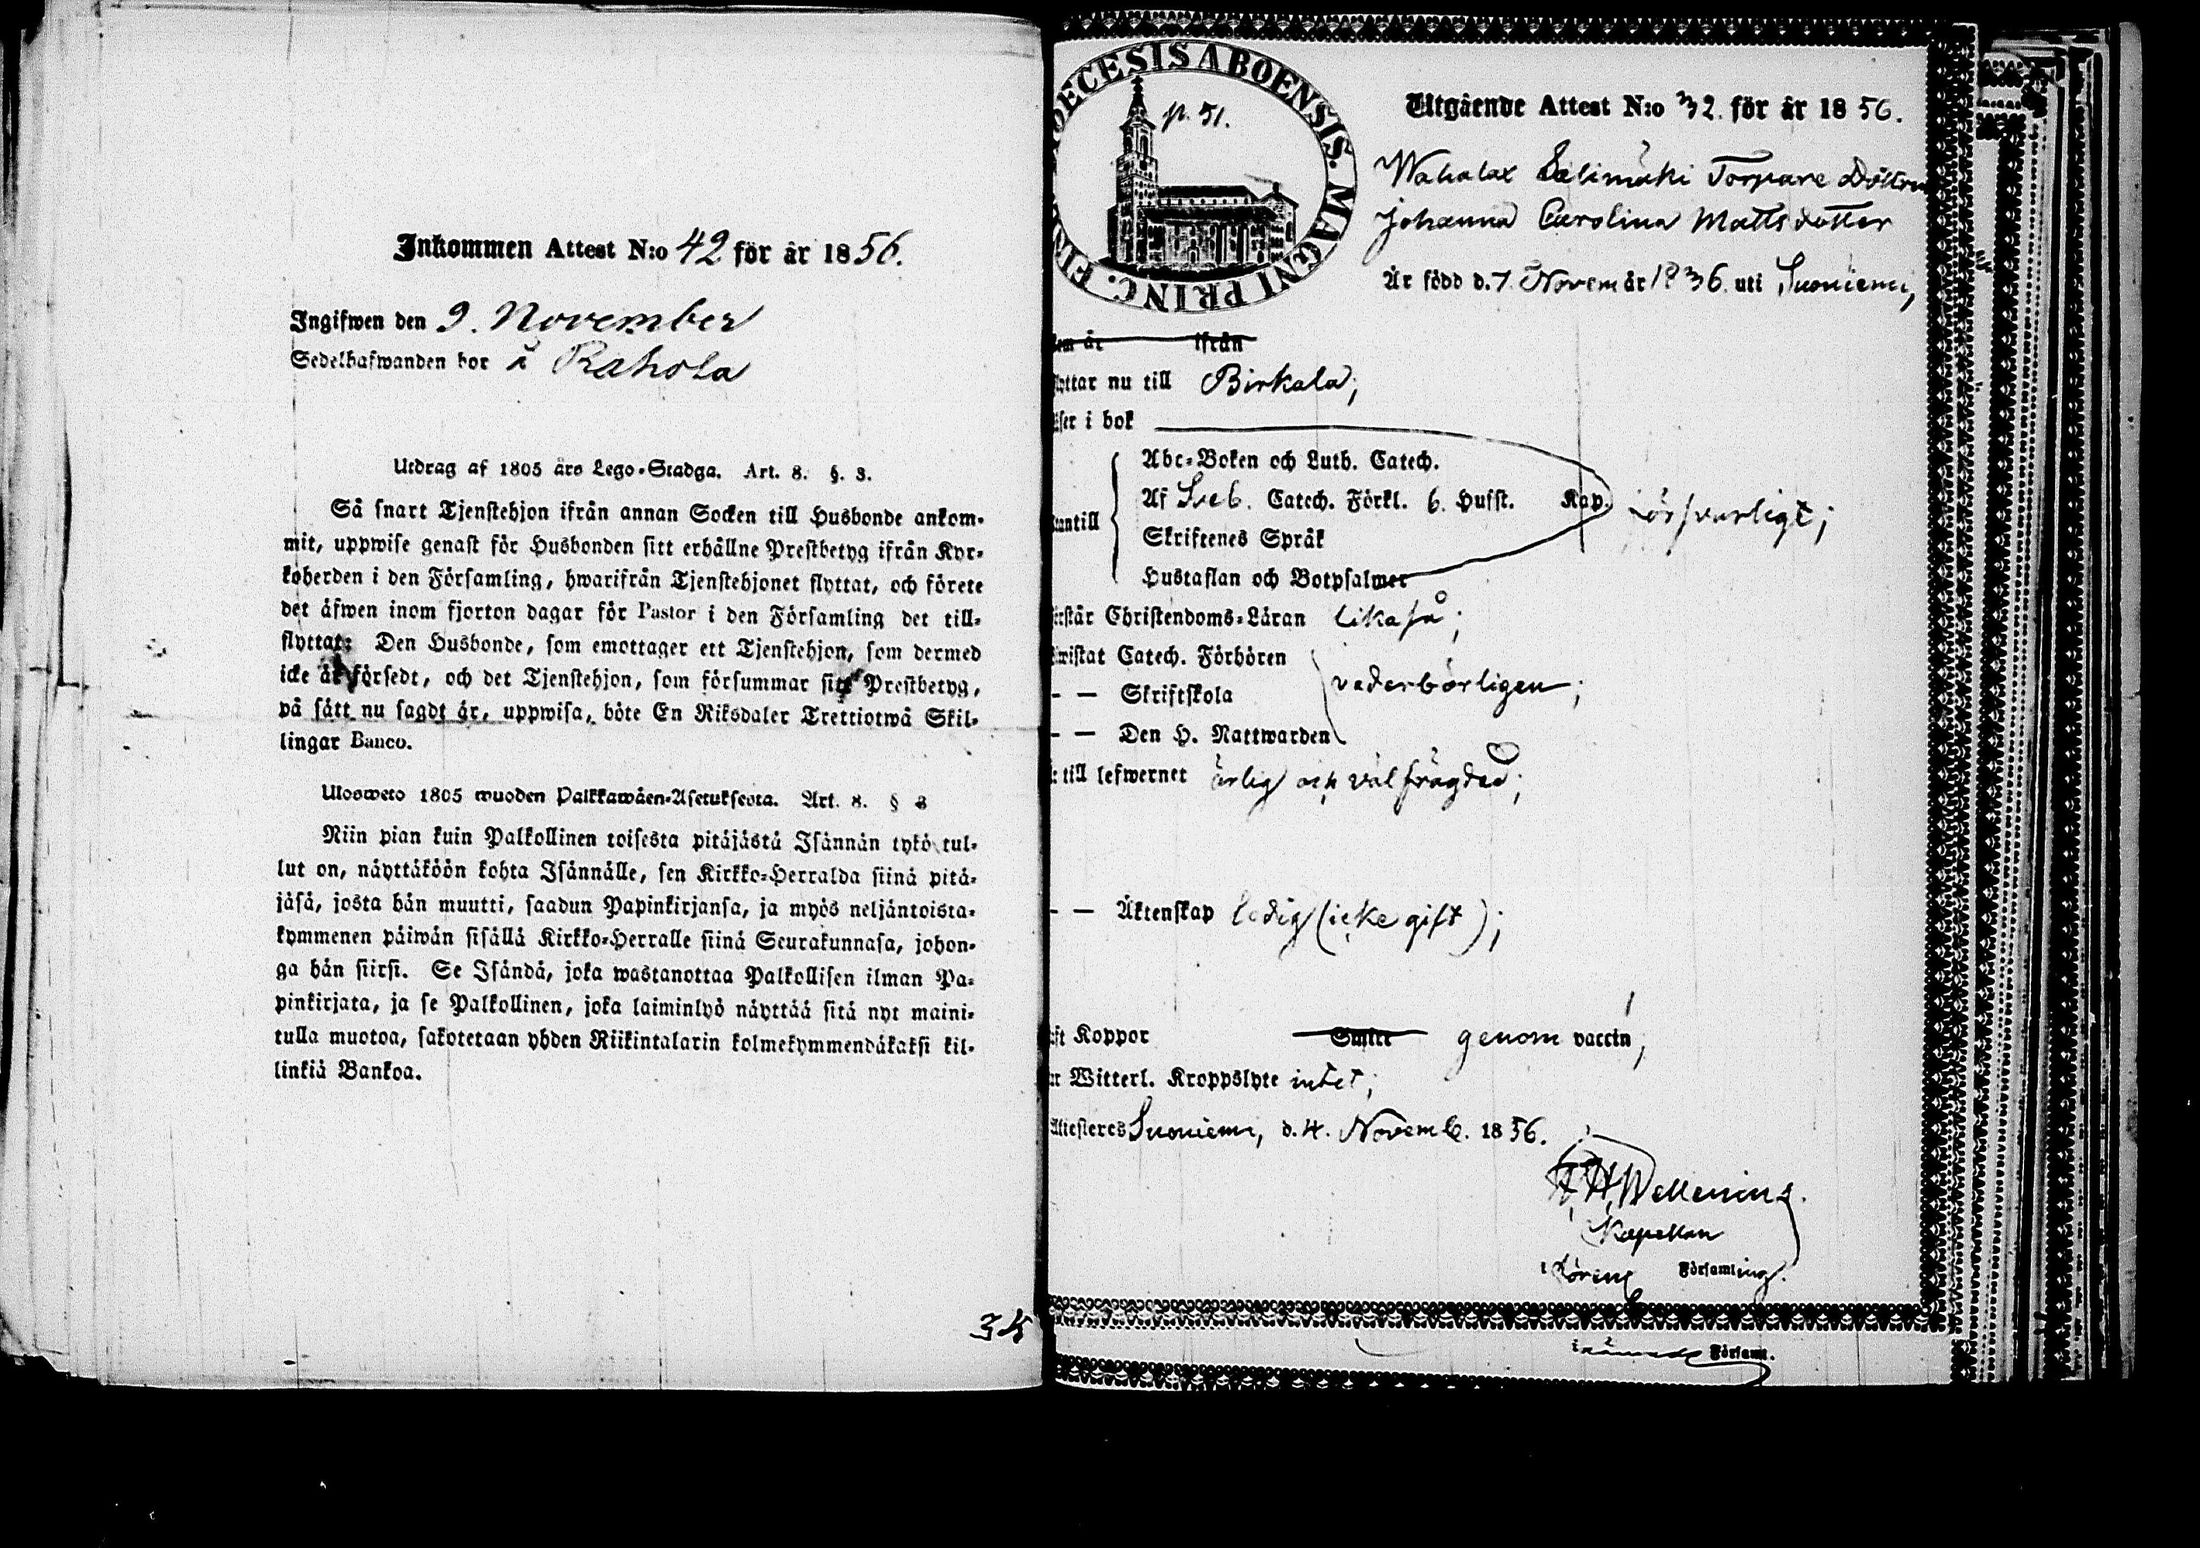 Inkommen Attest N:o 42 för år 1856.
Ingifwen den 9. November
Sedelhafwanden bor å Rahola
Utdrag af 1805 års Lego-Stadga. Art. 8. §. 3.
Så snart Tjenstehjon ifrån annan Socken till Husbonde ankom-
mit, uppwise genast för Husbonden sitt erhållne Prestbetyg ifrån Kyr-
koherden i den Församling, hwarifrån Tjenstehjonet flyttat, och förete
det äfwen inom fjorton dagar för Pastor i den Församling det till-
flyttat: Den Husbonde, som emottager ett Tjenstehjon, som dermed
icke är försedt, och det Tjenstehjon, som försummar sitt Prestbetyg,
på sätt nu sagdt är, uppwisa, böte En Riksdaler Trettiotwå Skil-
lingar Banco.
Ulosweto 1805 wuoden Palkkawäen-Asetuksesta. Art. 8. § 3
Niin pian kuin Palkollinen toisesta pitäjästä Isännän tykö tul-
lut on, näyttäköön kohta Isännälle, sen Kirkko-Herralda siinä pitä-
jäsä, josta hän muutti, saadun Papinkirjansa, ja myös neljäntoista-
kymmenen päiwän sisällä Kirkko-Herralle siinä Seurakunnasa, johon-
ga hän siirsi. Se Isändä, joka wastanottaa Palkollisen ilman Pa-
pinkirjata, ja se Palkollinen, joka laiminlyö näyttää sitä nyt maini-
tulla muotoa, sakotetaan yhden Riikintalarin kolmekymmendäkaksi kil-
linkiä Bankoa.
DECESIS ABOENSIS. MAGNI PRINC.
p. 51.
Utgående Attest N:o 32. för år 1856.
Wahalax Salimäki Torpare Dottren
Johanna Carolina Mattsdotter
Är född d. 7 Novem år 1836. uti Suoniemi,
år ifrån
nu till Birkala;
i bok
Abc-Boken och Luth. Catech.
Af Sveb. Catech. Förkl. 6. Husst. Kap. försvarligt;
Skriftenes Språk
Hustaflan och Botpsalmer
Christendoms-Läran likaså;
Catech. Förhören
— — Skriftskola vederbörligen;
— — Den H. Nattwarden
till lefwernet ärlig och välfrägdad;
— — Äktenskap ledig (icke gift);
Koppor Smitt genom vaccin;
Witterl. Kroppslyte intet;
Attesteres Suoniemi, d. 4. Novemb. 1856.
Kapellan
i Församling.
Församl.